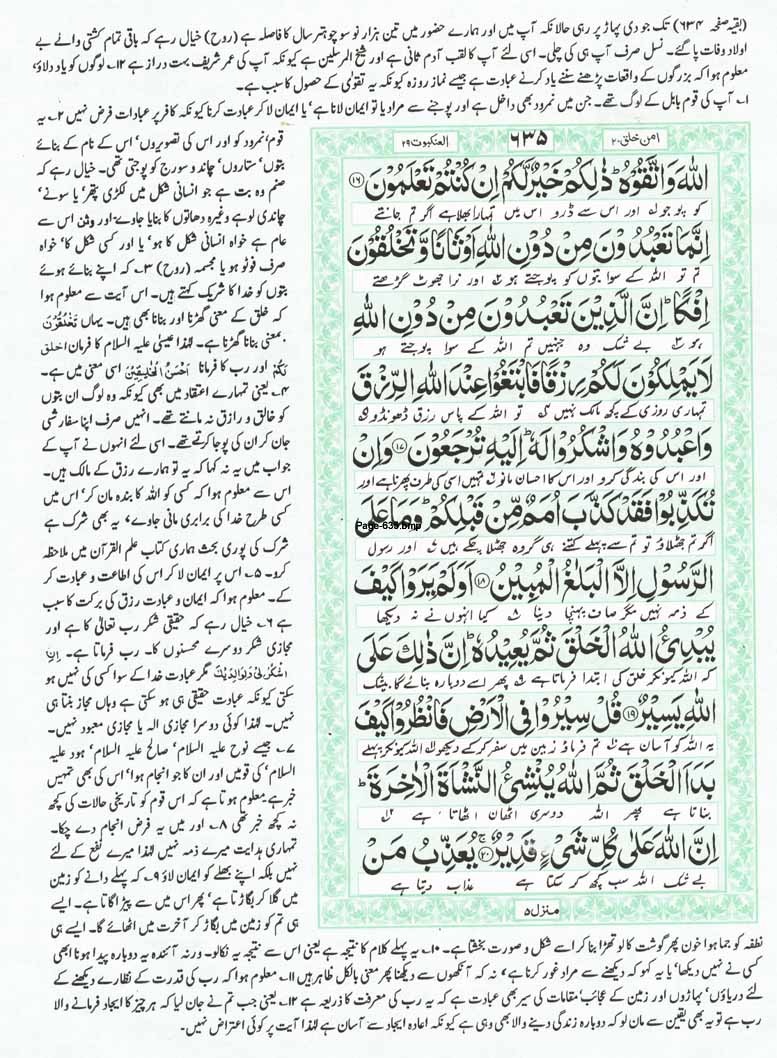 (بقیہ صفحہ ۶۳۴) تک جودی پہاڑ پر رہی حالانکہ آپ میں اور ہمارے حضور میں تین ہزار نو سو چوہتر سال کا فاصلہ ہے (روح) خیال رہے کہ باقی تمام کشتی والے بے
اولاد وفات پا گئے۔ نسل صرف آپ ہی کی چلی۔ اسی لئے آپ کا لقب آدم ثانی ہے اور شیخ المرسلین ہے کیونکہ آپ کی عمر شریف بہت دراز ہے ۱۲۔ لوگوں کو یاد دلاؤ،
معلوم ہوا کہ بزرگوں کے واقعات پڑھنے سننے یاد کرنے عبادت ہے جیسے نماز روزہ کیونکہ یہ تقویٰ کے حصول کا سبب ہے۔
۱۔ آپ کی قوم بابل کے لوگ تھے۔ جن میں نمرود بھی داخل ہے اور پوجنے سے مراد یا تو ایمان لانا ہے، یا ایمان لا کر عبادت کرنا کیونکہ کافر پر عبادات فرض نہیں ۲۔ یہ
امن خلق ۲۰
۶۳۵
العنکبوت ۲۹
اللهَ وَاتَّقُوْهُ ذٰلِكُمْ خَيْرٌ لَّكُمْ اِنْ كُنْتُمْ تَعْلَمُوْنَ ۱۶
کو پوجو اور اس سے ڈرو اس میں تمہارا بھلا ہے اگر تم جانتے
اِنَّمَا تَعْبُدُوْنَ مِنْ دُوْنِ اللهِ اَوْثَانًا وَّتَخْلُقُوْنَ
تم تو اللہ کے سوا بتوں کو پوجتے ہو اور نرا جھوٹ گڑھتے
اِفْكًا اِنَّ الَّذِيْنَ تَعْبُدُوْنَ مِنْ دُوْنِ اللهِ
ہو بے شک وہ جنہیں تم اللہ کے سوا پوجتے ہو
لَا يَمْلِكُوْنَ لَكُمْ رِزْقًا فَابْتَغُوْا عِنْدَ اللهِ الرِّزْقَ
تمہاری روزی کے کچھ مالک نہیں تو اللہ کے پاس رزق ڈھونڈو
وَاعْبُدُوْهُ وَاشْكُرُوْا لَهٗ اِلَيْهِ تُرْجَعُوْنَ ۱۷ وَاِنْ
اور اس کی بندگی کرو اور اس کا احسان مانو تمہیں اسی کی طرف پھرنا ہے اور
تُكَذِّبُوْا فَقَدْ كَذَّبَ اُمَمٌ مِّنْ قَبْلِكُمْ وَمَا عَلَى
Page-635.bmp
اگر تم جھٹلاؤ تو تم سے پہلے کتنے ہی گروہ جھٹلا چکے ہیں اور رسول
الرَّسُوْلِ اِلَّا الْبَلٰغُ الْمُبِيْنُ ۱۸ اَوَلَمْ يَرَوْا كَيْفَ
کے ذمہ نہیں مگر صاف پہنچا دینا کیا انہوں نے نہ دیکھا
يُبْدِئُ اللهُ الْخَلْقَ ثُمَّ يُعِيْدُهٗ اِنَّ ذٰلِكَ عَلَى
کہ اللہ کیونکر خلق کی ابتدا فرماتا ہے پھر اسے دوبارہ بنائے گا بیشک
اللهِ يَسِيْرٌ ۱۹ قُلْ سِيْرُوْا فِى الْاَرْضِ فَانْظُرُوْا كَيْفَ
یہ اللہ کو آسان ہے تم فرماؤ زمین میں سفر کر کے دیکھو اللہ کیونکر پہلے
بَدَاَ الْخَلْقَ ثُمَّ اللهُ يُنْشِئُ النَّشْاَةَ الْاٰخِرَةَ
بناتا ہے پھر اللہ دوسری اٹھان اٹھاتا ہے
اِنَّ اللهَ عَلٰى كُلِّ شَىْءٍ قَدِيْرٌ ۲۰ يُعَذِّبُ مَنْ
بے شک اللہ سب کچھ کر سکتا ہے عذاب دیتا ہے
منزل ۵
قوم، نمرود کو اور اس کی تصویروں، اس کے نام کے بنائے
بتوں، ستاروں، چاند و سورج کو پوجتی تھی۔ خیال رہے کہ
صنم وہ بت ہے جو انسانی شکل میں لکڑی پتھر، یا سونے،
چاندی لوہے وغیرہ دھاتوں کا بنایا جاوے اور وثن اس سے
عام ہے خواہ انسانی شکل کا ہو، یا اور کسی شکل کا، خواہ
صرف فوٹو ہو یا مجسمہ (روح) ۳۔ کہ اپنے بنائے ہوئے
بتوں کو خدا کا شریک کہتے ہیں۔ اس آیت سے معلوم ہوا
کہ خلق کے معنی گھڑنا اور بنانا بھی ہیں۔ یہاں تَخْلُقُوْنَ
بمعنی بنانا گھڑنا ہے۔ لہٰذا عیسیٰ علیہ السلام کا فرمان اَخْلُقُ
لَكُمْ اور رب کا فرمانا اَحْسَنُ الْخَالِقِيْنَ اسی معنی میں ہے۔
۴۔ یعنی تمہارے اعتقاد میں بھی کیونکہ وہ لوگ ان بتوں
کو خالق و رازق نہ مانتے تھے۔ انہیں صرف اپنا سفارشی
جان کر ان کی پوجا کرتے تھے۔ اسی لئے انہوں نے آپ کے
جواب میں یہ نہ کہا کہ یہ تو ہمارے رزق کے مالک ہیں۔
اس سے معلوم ہوا کہ کسی کو اللہ کا بندہ مان کر، اس میں
کسی طرح خدا کی برابری مانی جاوے، یہ بھی شرک ہے
شرک کی پوری بحث ہماری کتاب علم القرآن میں ملاحظہ
کرو۔ ۵۔ اس پر ایمان لا کر اس کی اطاعت و عبادت کر
کے۔ معلوم ہوا کہ ایمان و عبادت رزق کی برکت کا سبب
ہے ۶۔ خیال رہے کہ حقیقی شکر رب تعالیٰ کا ہے اور
مجازی شکر دوسرے محسنوں کا۔ رب فرماتا ہے۔ اَنِ
اشْكُرْ لِىْ وَلِوَالِدَيْكَ مگر عبادت خدا کے سوا کسی کی نہیں ہو
سکتی کیونکہ عبادت حقیقی ہی ہو سکتی ہے وہاں مجاز بنتا ہی
نہیں۔ لہٰذا کوئی دوسرا مجازی الہ یا مجازی معبود نہیں۔
۷۔ جیسے نوح علیہ السلام، صالح علیہ السلام، ہود علیہ
السلام، کی قومیں اور ان کا جو انجام ہوا، اس کی بھی تمہیں
خبر ہے معلوم ہوتا ہے کہ اس قوم کو تاریخی حالات کی کچھ
نہ کچھ خبر تھی ۸۔ اور میں یہ فرض انجام دے چکا۔
تمہاری ہدایت میرے ذمہ نہیں لہٰذا میرے نفع کے لئے
نہیں بلکہ اپنے بھلے کو ایمان لاؤ ۹۔ کہ پہلے دانے کو زمین
میں گلا کر بگاڑتا ہے، پھر اس میں سے پیڑ اگاتا ہے۔ ایسے
ہی تم کو زمین میں بگاڑ کر آخرت میں اٹھائے گا۔ ایسے ہی
نطفہ کو جما ہوا خون پھر گوشت کا لوتھڑا بنا کر اسے شکل و صورت بخشتا ہے۔ ۱۰۔ یہ پہلے کلام کا نتیجہ ہے یعنی اس سے نتیجہ یہ نکالو۔ ورنہ آئندہ یہ دوبارہ پیدا ہونا ابھی
کسی نے نہیں دیکھا، یا یہ کہو کہ دیکھنے سے مراد غور کرنا ہے، نہ کہ آنکھوں سے دیکھنا پھر معنی بالکل ظاہر ہیں ۱۱۔ معلوم ہوا کہ رب کی قدرت کے نظارے دیکھنے کے
لئے دریاؤں، پہاڑوں اور زمین کے عجائب مقامات کی سیر بھی عبادت ہے کہ یہ رب کی معرفت کا ذریعہ ہے ۱۲۔ یعنی جب تم نے جان لیا کہ ہر چیز کا ایجاد فرمانے والا
رب ہے تو یہ بھی یقین سے مان لو کہ دوبارہ زندگی دینے والا بھی وہی ہے کیونکہ اعادہ ایجاد سے آسان ہے لہٰذا آیت پر کوئی اعتراض نہیں۔